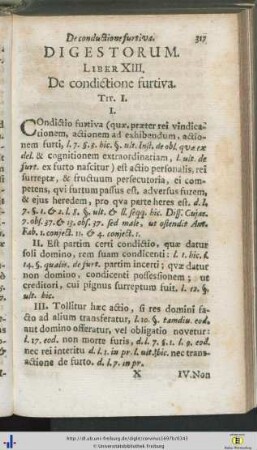 De conductione furtiva. 317
DIGESTORUM.
LIBER XIII.
De condictione furtiva.
TIT. I.
I.
COndictio furtiva (quæ, præter rei vindica-
tionem, actionem ad exhibendum, actio-
nem furti, l. 7. §. 1. hic. §. ult. Inst. de obl. quæ ex
del. & cognitionem extraordinariam, l. ult. de
furt. ex furto nascitur) est actio personalis, rei
surreptæ, & fructuum persecutoria, ei com-
petens, qui furtum passus est, adversus furem,
& ejus heredem, pro qua parte heres est. d. l.
7. §. 2. & 2. l. 5. §. ult. & ll. seqq. hic. Diss. Cujac.
7. obs. 37. & 13. obs. 37. sed male, ut ostendit Ant.
Fab. 1. conject. 11. & 4. conject. 1.
II. Est partim certi condictio, quæ datur
soli domino, rem suam condicenti: l. 1. hic. l.
14. §. qualis. de furt. partim incerti; quæ datur
non domino, condicenti possessionem; ut
creditori, cui pignus surreptum fuit. l. 12. §.
ult. hic.
III. Tollitur hæc actio, si res domini fa-
cto ad alium transferatur, l. 10. §. tamdiu. eod.
aut domino offeratur, vel obligatio novetur:
l. 17. eod. non morte furis, d. l. 7. §. 2. l. 9. eod.
nec rei interitu d. l. 1. in pr. l. ult. hic. nec trans-
actione de furto. d. l. 7. in pr.
X IV. Non
http://dl.ub.uni-freiburg.de/diglit/corvinus1697b/0343
Universitätsbibliothek Freiburg